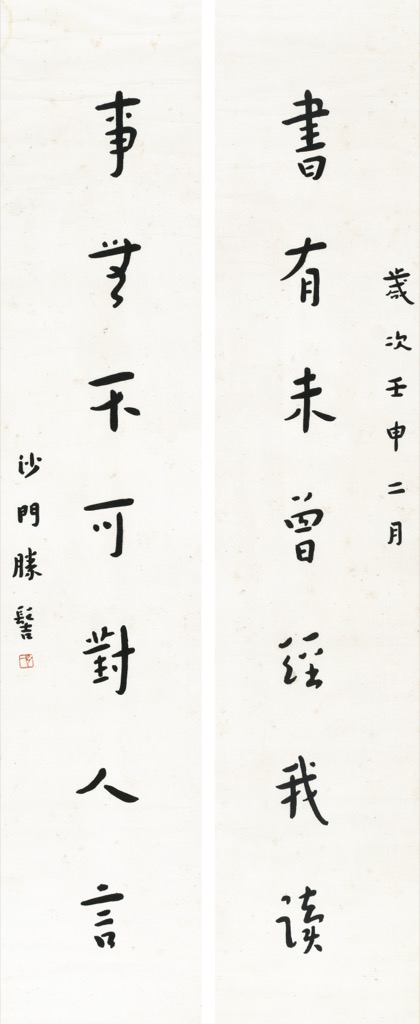 歲次壬申二月
書有未曾經我读
事無不可對人言
沙門勝髻